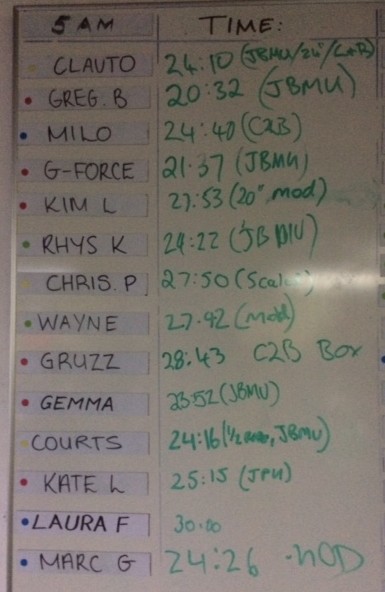 5 AM TIME:
CLAUTO 24:10 (JBMU/24"/C2B)
GREG. B 20:32 (JBMU)
MILO 24:40 (C2B)
G-FORCE 21:37 (JBMU)
KIM L 27:53 (20" mod)
RHYS K 24:22 (JBMU)
CHRIS. P 27:50 (Scaled)
WAYNE 27.42 (mod)
GRUZZ 28:43 C2B Box
GEMMA 23:52 (JBMU)
COURTS 24:16 (1/2 JBMU)
KATE L 25:15 (JPU)
LAURA F 30:00
MARC G 24:26